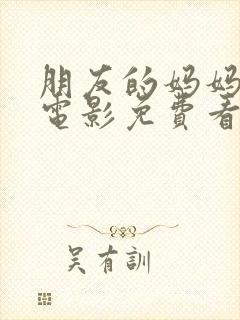 朋友的妈妈
电影免費看
吴有訓